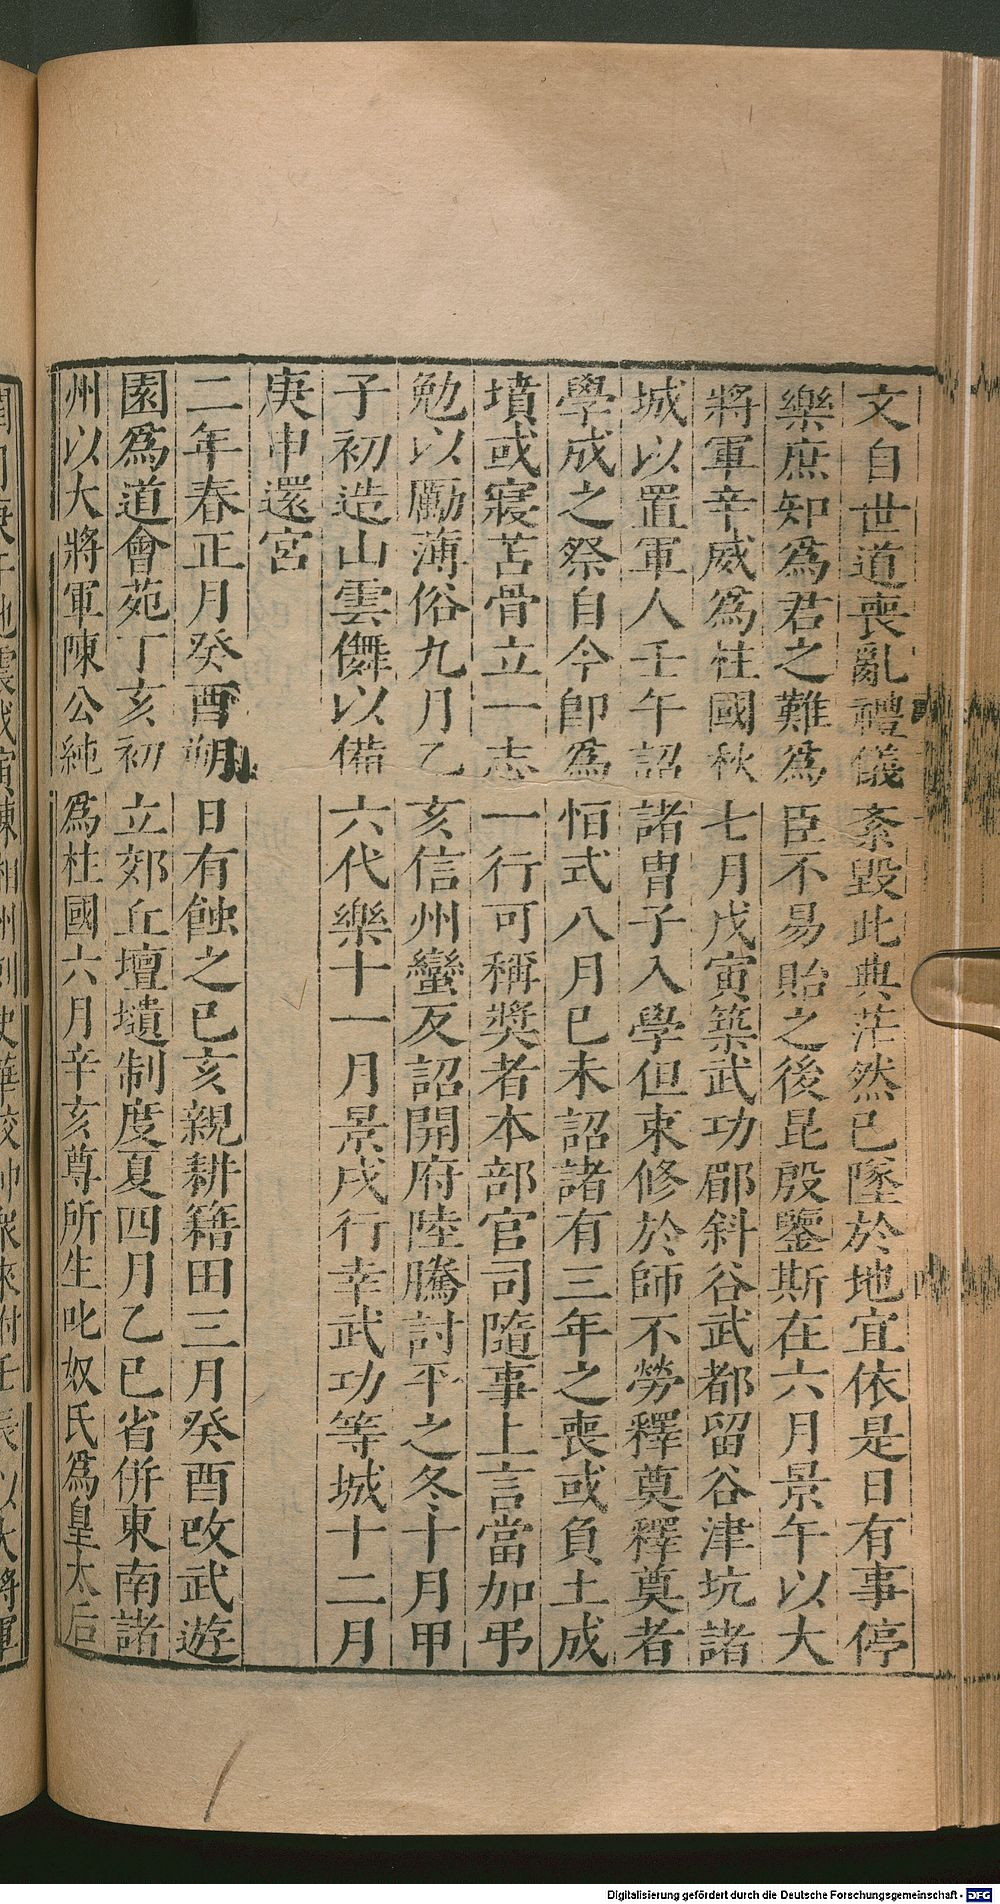 文自世道喪亂禮儀紊毀此典茫然已墜於地宜依是日有事停
樂庶知爲君之難爲臣不易貽之後昆殷鑒斯在六月景午以大
將軍辛威爲柱國秋七月戊寅築武功郿斜谷武都留谷津坑諸
城以置軍人壬午詔諸胄子入學但束修於師不勞釋奠釋奠者
學成之祭自今即爲恒式八月己未詔諸有三年之喪或負土成
墳或寢苫骨立一志一行可稱獎者本部官司隨事上言當加弔
勉以勵薄俗九月乙亥信州蠻反詔開府陸騰討平之冬十月甲
子初造山雲儛以備六代樂十一月景戌行幸武功等城十二月
庚申還宮
二年春正月癸酉朔日有蝕之己亥親耕籍田三月癸酉改武遊
園爲道會苑丁亥初立郊丘壇壝制度夏四月乙巳省併東南諸
州以大將軍陳公純爲柱國六月辛亥尊所生叱奴氏爲皇太后
Digitalisierung gefördert durch die Deutsche Forschungsgemeinschaft - DFG